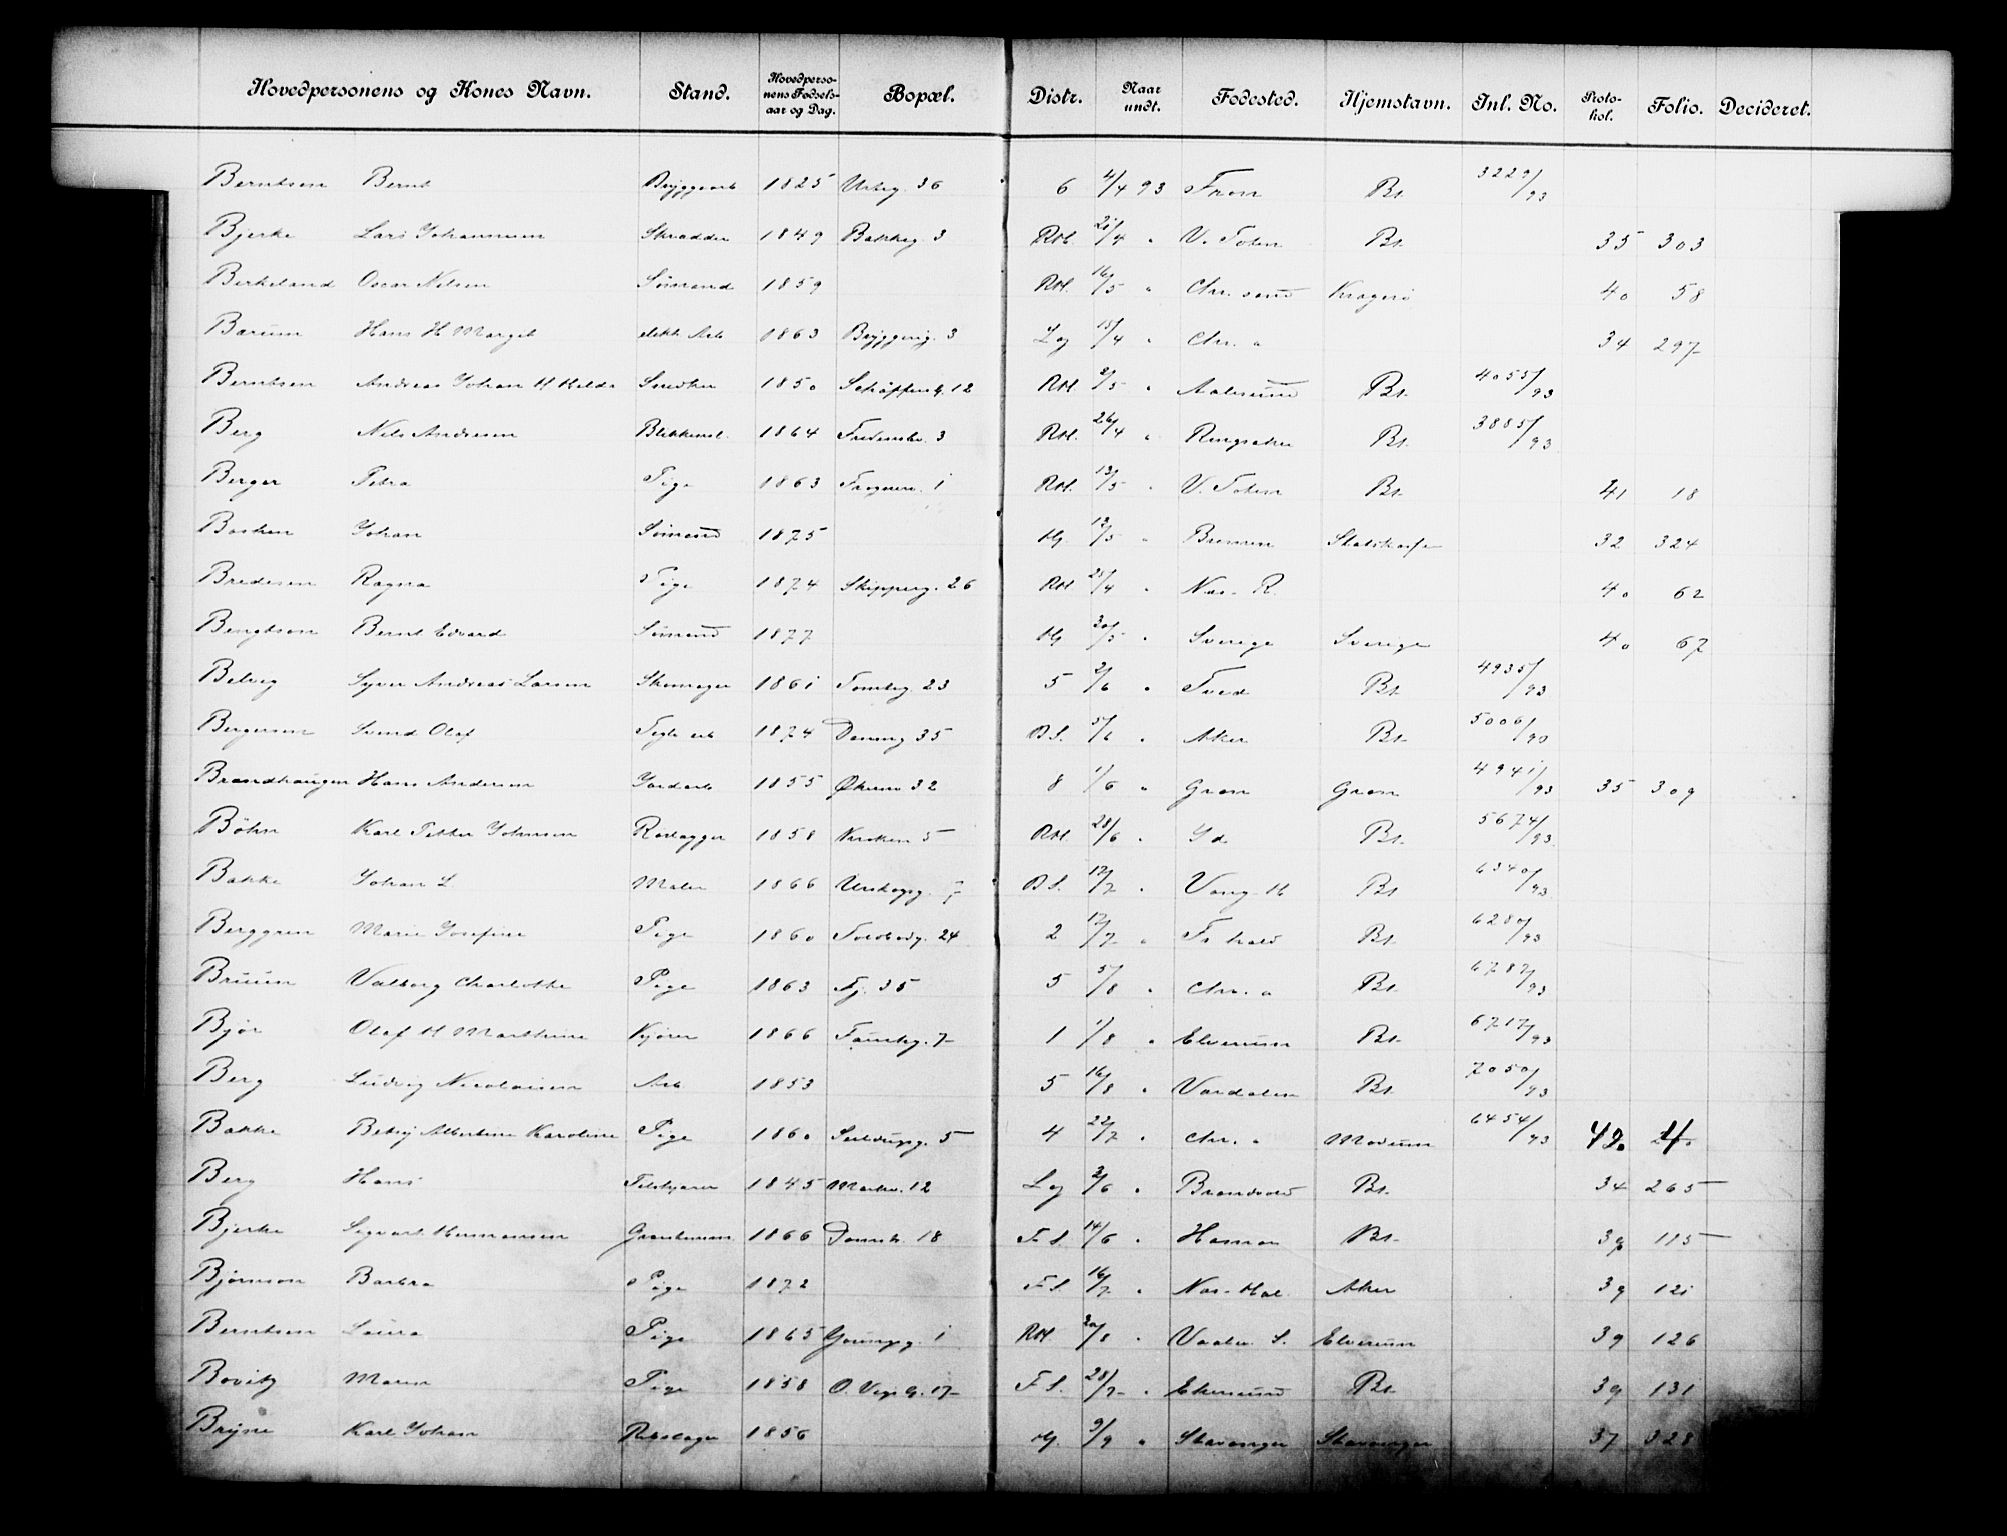 Hovedpersonens og Kones Navn. Stand. Hovedpersonens Fødselsaar og Dag. Bopæl. Distr. Naar undt. Fødested. Hjemstavn. Inl. No. Protokol. Folio. Decideret.
Berntsen Bernt Bryggearb 1825 36 6 4/4 93 Fron Bt. 3229/93
Bjerke Lars Johannesen Skrædder 1849 Bakkeg. 3 RH. 4 " V. Toten Bt. 35 303
Birkeland Oscar Nilsen Sømand 1859 RH. 16/5 " Chr. sand Kragerø 40 58
Bærum Hans H Margit elektr. Arb 1863 Bryggerig. 3 Lg 15/4 " Chr. a 34 297
Berntsen Andreas Johan H Hilda Snedker 1850 12 RH. 2/5 " Aalesund Bt. 4055/93
Berg Nils Andresen Blikkensl. 1864 3 RH. 26/4 " Ringsaker Bt. 3885/93
Berger Petra Pige 1863 Frognerv. 1 RH. 13/5 " V. Toten Bt. 41 18
Johan Sømand 1875 Hj. 12/5 " Bremen 32 324
Bredesen Ragna Pige 1874 Skipperg. 26 RH 25/4 " Næs. R. 40 62
Bengtson Bernt Edvard Sømand 1877 Hj 30/5 " Sverige Sverige 40 67
Belvig Syver Andreas Larsen Skomager 1861 Tomteg. 23 5 2/6 " Tved Bt. 4935/93
Bergersen Svend Olaf Tegls arb 1874 35 B S. 5/6 " Aker Bt. 5006/93
Brandhaugen Hans Andersen Jordarb 1855 Økernv 32 8 1/6 " Gran Gran 4941/93 35 309
Bøhn Karl Petter Johnsen Rørlægger 1858 Kroken 5 RH. 28/6 " Id Bt. 5674/93
Bakke Johan L Maler 1866 Urskogg. 7 B S. 17/7 " Vang. H Bt. 6340/93
Berggren Marie Josefine Pige 1860 Toldbodg. 24 2 17/7 " Fr hald Bt. 6280/93
Bruun Valborg Charlotte Pige 1863 35 5 5/8 " Chr. a Bt. 6787/93
Bjør Olaf H Marthine Kjører 1866 7 1 1/8 " Elverum Bt. 6717/93
Berg Ludvig Nicolaisen Arb 1853 5 16/8 " Værdalen Bt. 7050/93
Bakke Betsy Albertine Karoline Pige 1860 Seilduksg. 5 4 22/7 " Chr. a Modum 6454/93 4
Berg Hans 1845 Markv. 12 Lg 2/6 " Brandvold Bt. 34 265
Bjerke Sigvart Hermansen 1866 18 F S. 14/6 " Hamar Bt. 39 115
Bjørnson Barbra Pige 1872 F S. 16/7 " Næs. Hal. Aker 39 121
Berntsen Laura Pige 1865 Youngsg. 1 RH. 20/8 " Vaaler. S. Elverum 39 126
Maren Pige 1858 17 F S. 28/7 " Ekersund Bt. 39 131
Bryne Karl Johan 1856 Hj. 9/9 " Stavanger Stavanger 37 328